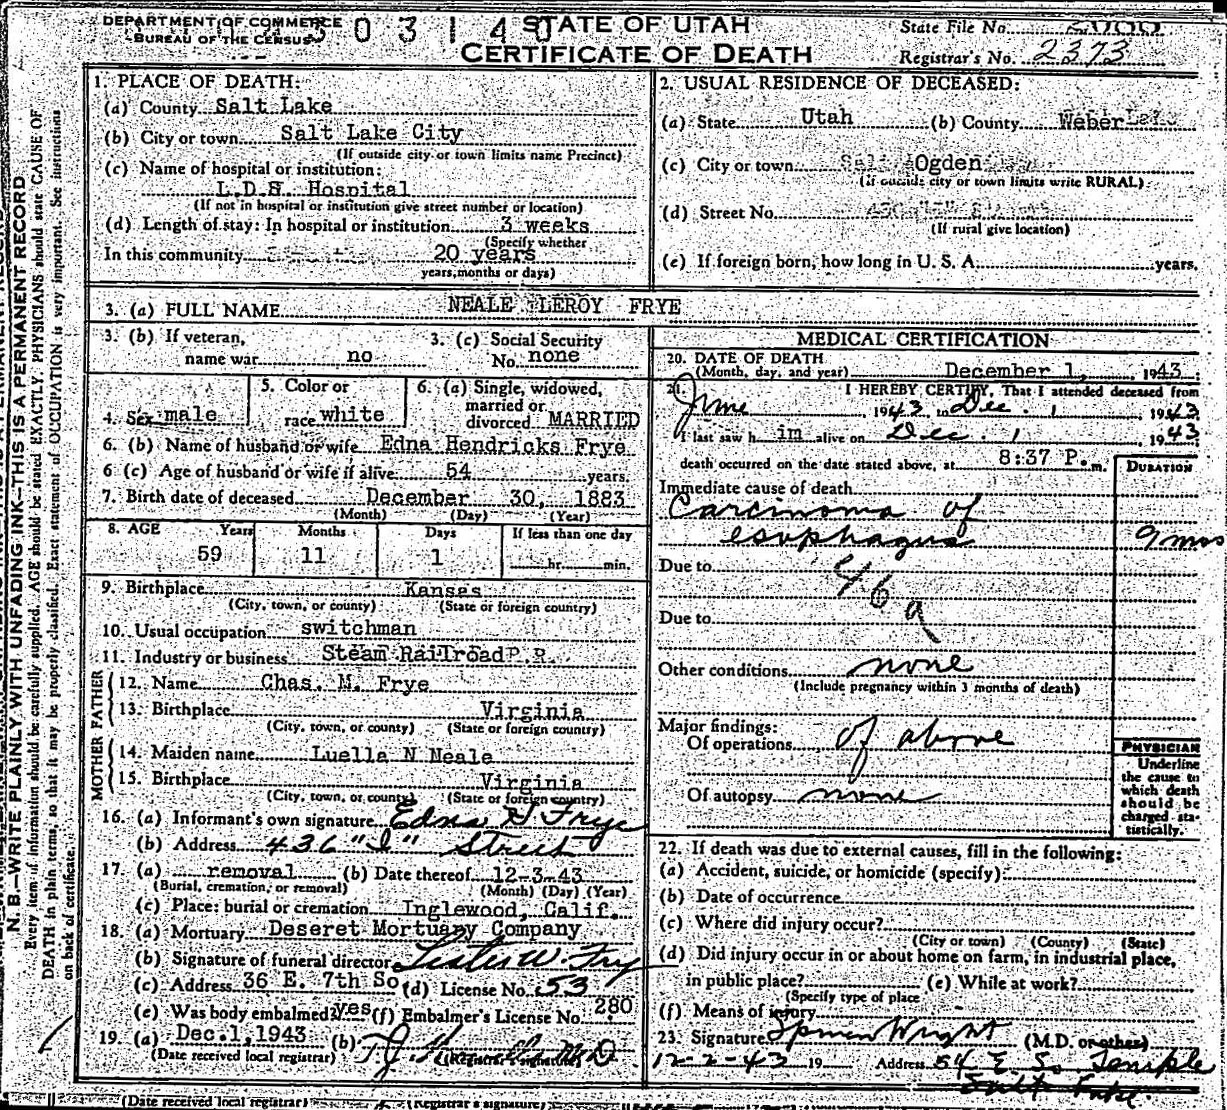 DEPARTMENT OF COMMERCE
BUREAU OF THE CENSUS
0 3 1 4 0
STATE OF UTAH
CERTIFICATE OF DEATH
State File No.
Registrar's No. 2373
N. B.—WRITE PLAINLY WITH UNFADING INK—THIS IS A PERMANENT RECORD
Every item of information should be carefully supplied. AGE should be stated EXACTLY. PHYSICIANS should state CAUSE OF
DEATH in plain terms, so that it may be properly classified. Exact statement of OCCUPATION is very important. See instructions
on back of certificate.
1. PLACE OF DEATH:
(a) County Salt Lake
(b) City or town Salt Lake City
(If outside city or town limits name Precinct)
(c) Name of hospital or institution:
L.D.S. Hospital
(If not in hospital or institution give street number or location)
(d) Length of stay: In hospital or institution 3 weeks
(Specify whether
In this community 20 years
years, months or days)
2. USUAL RESIDENCE OF DECEASED:
(a) State Utah (b) County Weber
(c) City or town Ogden
(If outside city or town limits write RURAL)
(d) Street No.
(If rural give location)
(e) If foreign born, how long in U. S. A. years.
3. (a) FULL NAME NEALE LEROY FRYE
3. (b) If veteran, name war no
3. (c) Social Security No. none
4. Sex male
5. Color or race white
6. (a) Single, widowed, married or divorced MARRIED
6. (b) Name of husband or wife Edna Hendricks Frye
6 (c) Age of husband or wife if alive 54 years.
7. Birth date of deceased December 30, 1883
(Month) (Day) (Year)
8. AGE Years Months Days If less than one day
59 11 1 hr. min.
9. Birthplace Kansas
(City, town, or county) (State or foreign country)
10. Usual occupation switchman
11. Industry or business Steam Railroad R.R.
FATHER
12. Name Chas. M. Frye
13. Birthplace Virginia
(City, town, or county) (State or foreign country)
MOTHER
14. Maiden name Luella N Neale
15. Birthplace Virginia
(City, town, or county) (State or foreign country)
16. (a) Informant's own signature Edna H Frye
(b) Address 436 "I" Street
17. (a) removal (b) Date thereof 12-3-43
(Burial, cremation, or removal) (Month) (Day) (Year)
(c) Place: burial or cremation Inglewood, Calif.
18. (a) Mortuary Deseret Mortuary Company
(b) Signature of funeral director Leslie W. Fry
(c) Address 36 E. 7th So (d) License No. 53
(e) Was body embalmed? yes (f) Embalmer's License No. 280
19. (a) Dec.1,1943 (b)
(Date received local registrar) (Registrar's signature)
MEDICAL CERTIFICATION
20. DATE OF DEATH
(Month, day, and year) December 1, 1943
21. I HEREBY CERTIFY, That I attended deceased from
June 1943 to Dec. 1 1943
I last saw h im alive on Dec. 1, 1943
death occurred on the date stated above, at 8:37 P. m.
DURATION
Immediate cause of death
Carcinoma of
esophagus 9 mos
Due to 46a
Due to
Other conditions none
(Include pregnancy within 3 months of death)
Major findings:
Of operations of above
Of autopsy none
PHYSICIAN
Underline
the cause to
which death
should be
charged sta-
tistically.
22. If death was due to external causes, fill in the following:
(a) Accident, suicide, or homicide (specify):
(b) Date of occurrence
(c) Where did injury occur?
(City or town) (County) (State)
(d) Did injury occur in or about home on farm, in industrial place,
in public place? (e) While at work?
(Specify type of place
(f) Means of injury
23. Signature Spencer Wright (M.D. or other)
12-2-43 19 Address 54 E. So Temple
Salt Lake
(Date received local registrar) (Registrar's signature)